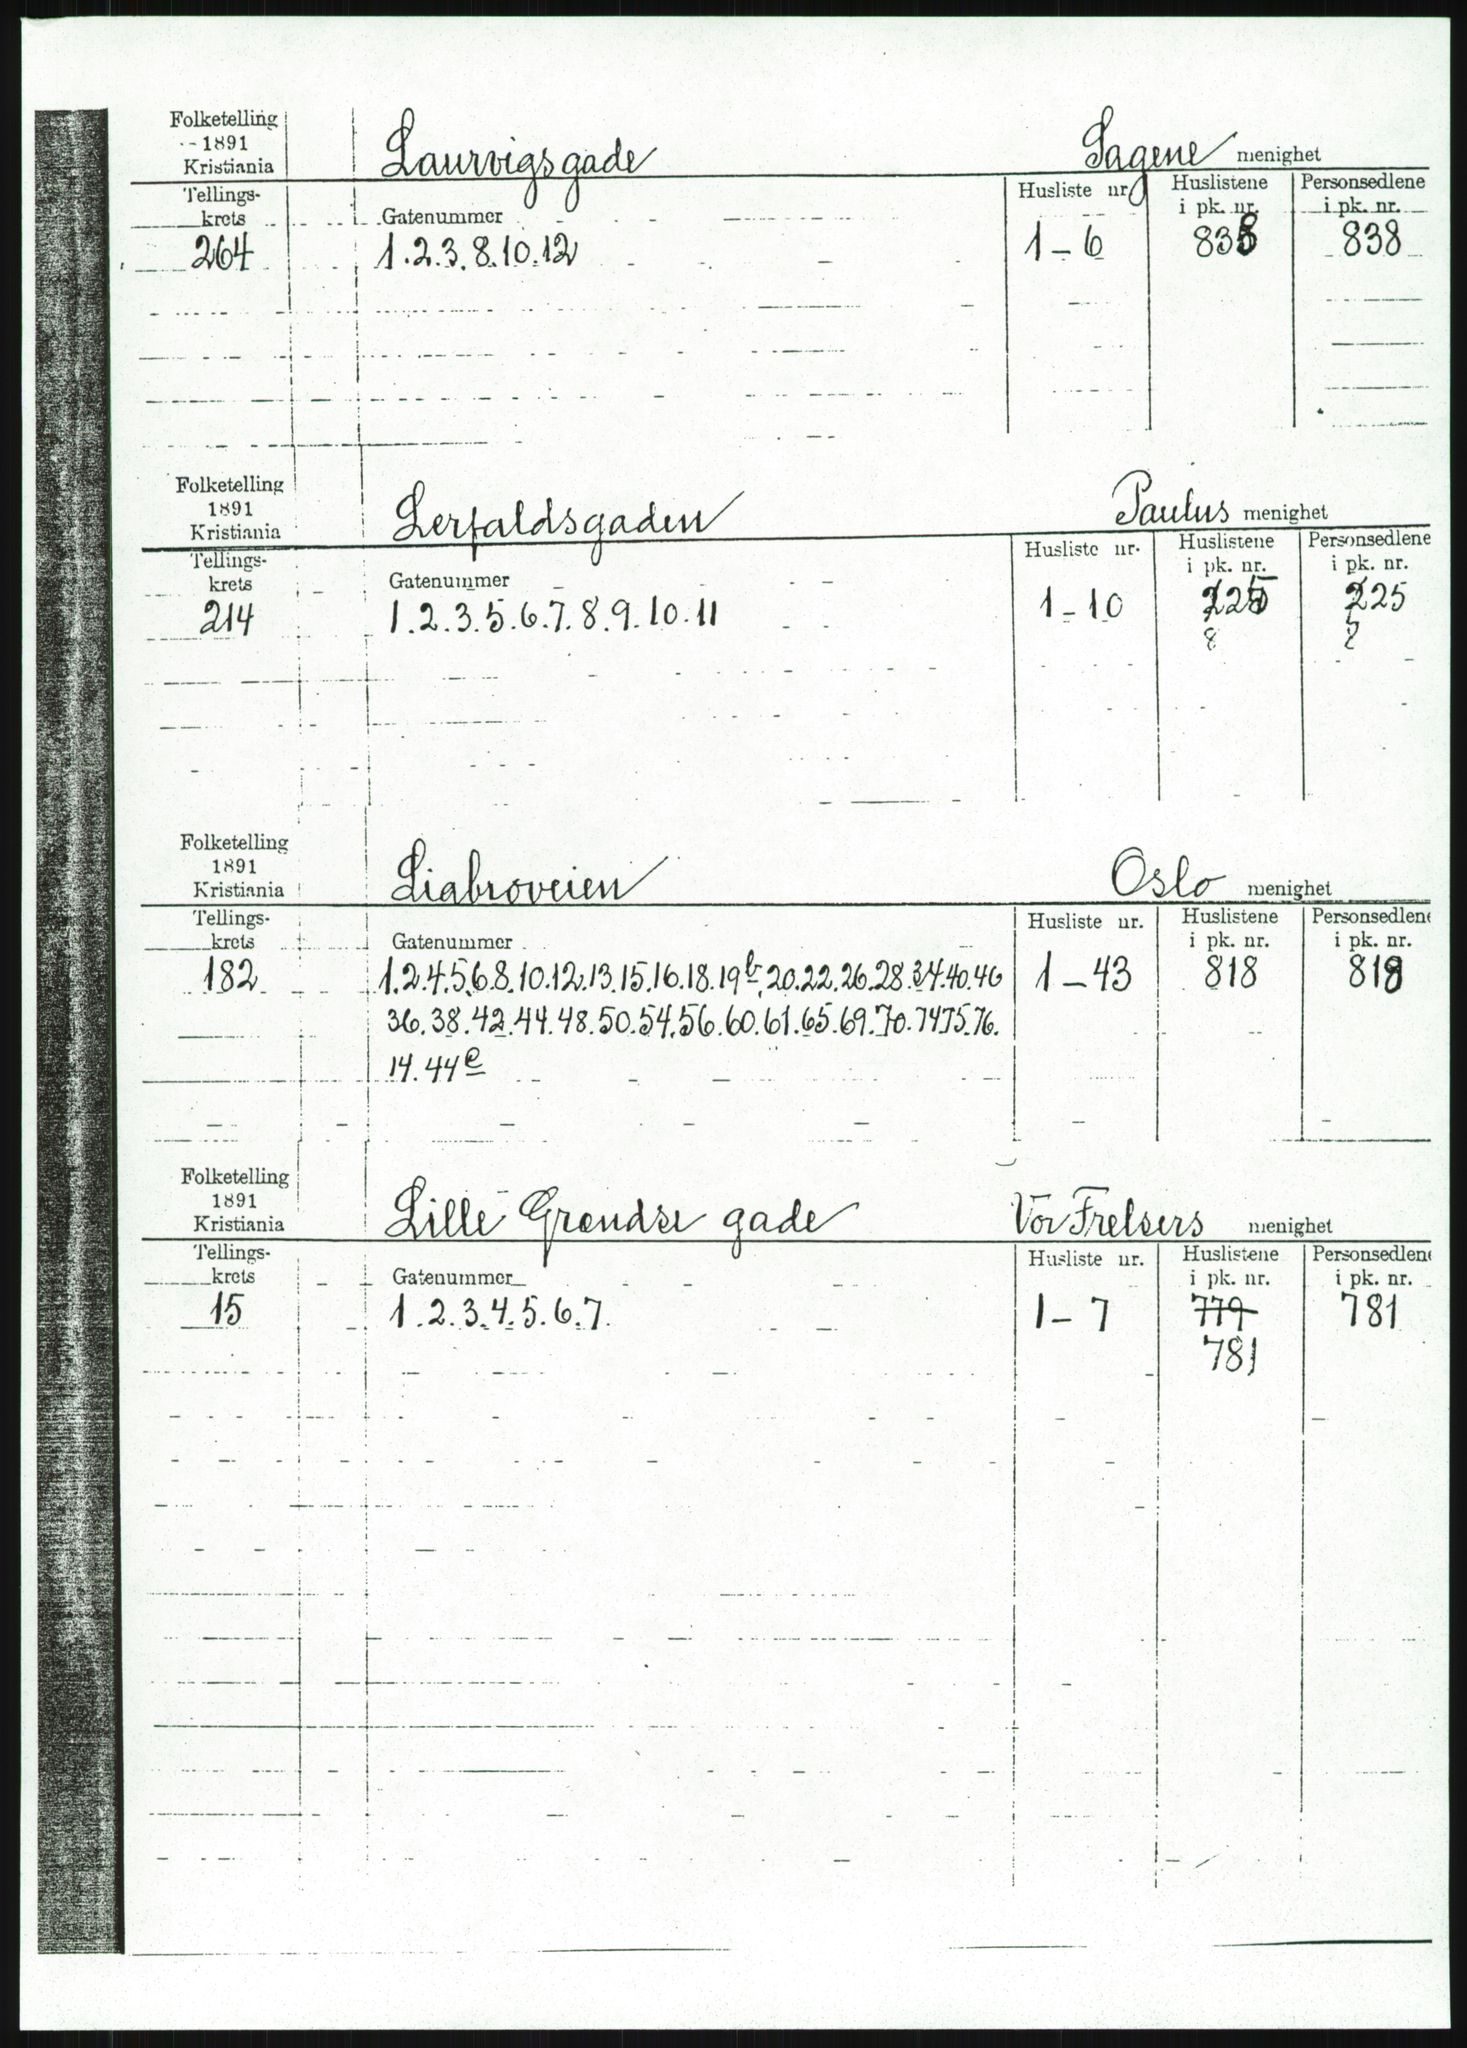 Folketelling
1891
Kristiania
Laurvigsgade
Sagene menighet
Tellings-
krets
Gatenummer
Husliste nr.
Huslistene
i pk. nr.
Personsedlene
i pk. nr.
264 1.2.3.8.10.12 1-6 838 838
Folketelling
1891
Kristiania
Lerfaldsgaden
Paulus menighet
Tellings-
krets
Gatenummer
Husliste nr.
Huslistene
i pk. nr.
Personsedlene
i pk. nr.
214 1.2.3.5.6.7.8.9.10.11 1-10 225 225
8
Folketelling
1891
Kristiania
Liabroveien
Oslo menighet
Tellings-
krets
Gatenummer
Husliste nr.
Huslistene
i pk. nr.
Personsedlene
i pk. nr.
182 1.2.4.5.6.8.10.12.13.15.16.18.19b.20.22.26.28.34.40.46 1-43 818 818
36.38.42.44.48.50.54.56.60.61.65.69.70.74.75.76.
14.44e
Folketelling
1891
Kristiania
Lille Grændse gade
Vor Frelsers menighet
Tellings-
krets
Gatenummer
Husliste nr.
Huslistene
i pk. nr.
Personsedlene
i pk. nr.
15 1.2.3.4.5.6.7. 1-7 779 781
781